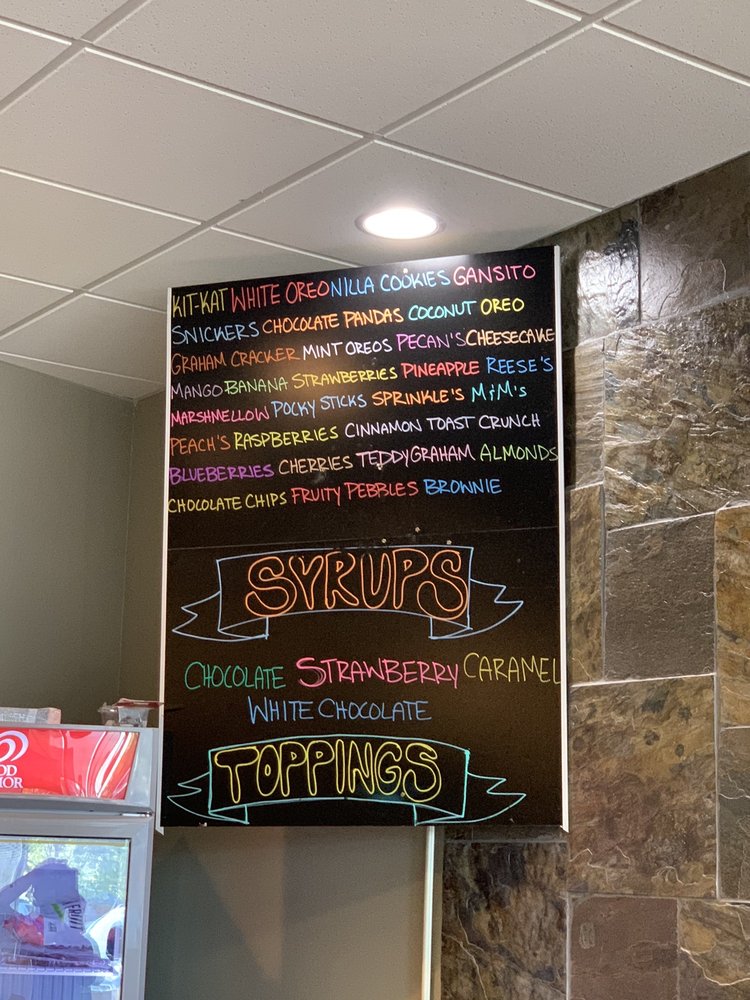 KIT-KAT WHITE OREO NILLA COOKIES GANSITO
SNICKERS CHOCOLATE PANDAS COCONUT OREO
GRAHAM CRACKER MINT OREOS PECAN'S CHEESECAKE
MANGO BANANA STRAWBERRIES PINEAPPLE REESE'S
MARSHMELLOW POCKY STICKS SPRINKLE'S M&M's
PEACH'S RASPBERRIES CINNAMON TOAST CRUNCH
BLUEBERRIES CHERRIES TEDDYGRAHAM ALMONDS
CHOCOLATE CHIPS FRUITY PEBBLES BROWNIE
SYRUPS
CHOCOLATE STRAWBERRY CARAMEL
WHITE CHOCOLATE
TOPPINGS
OD
MOR